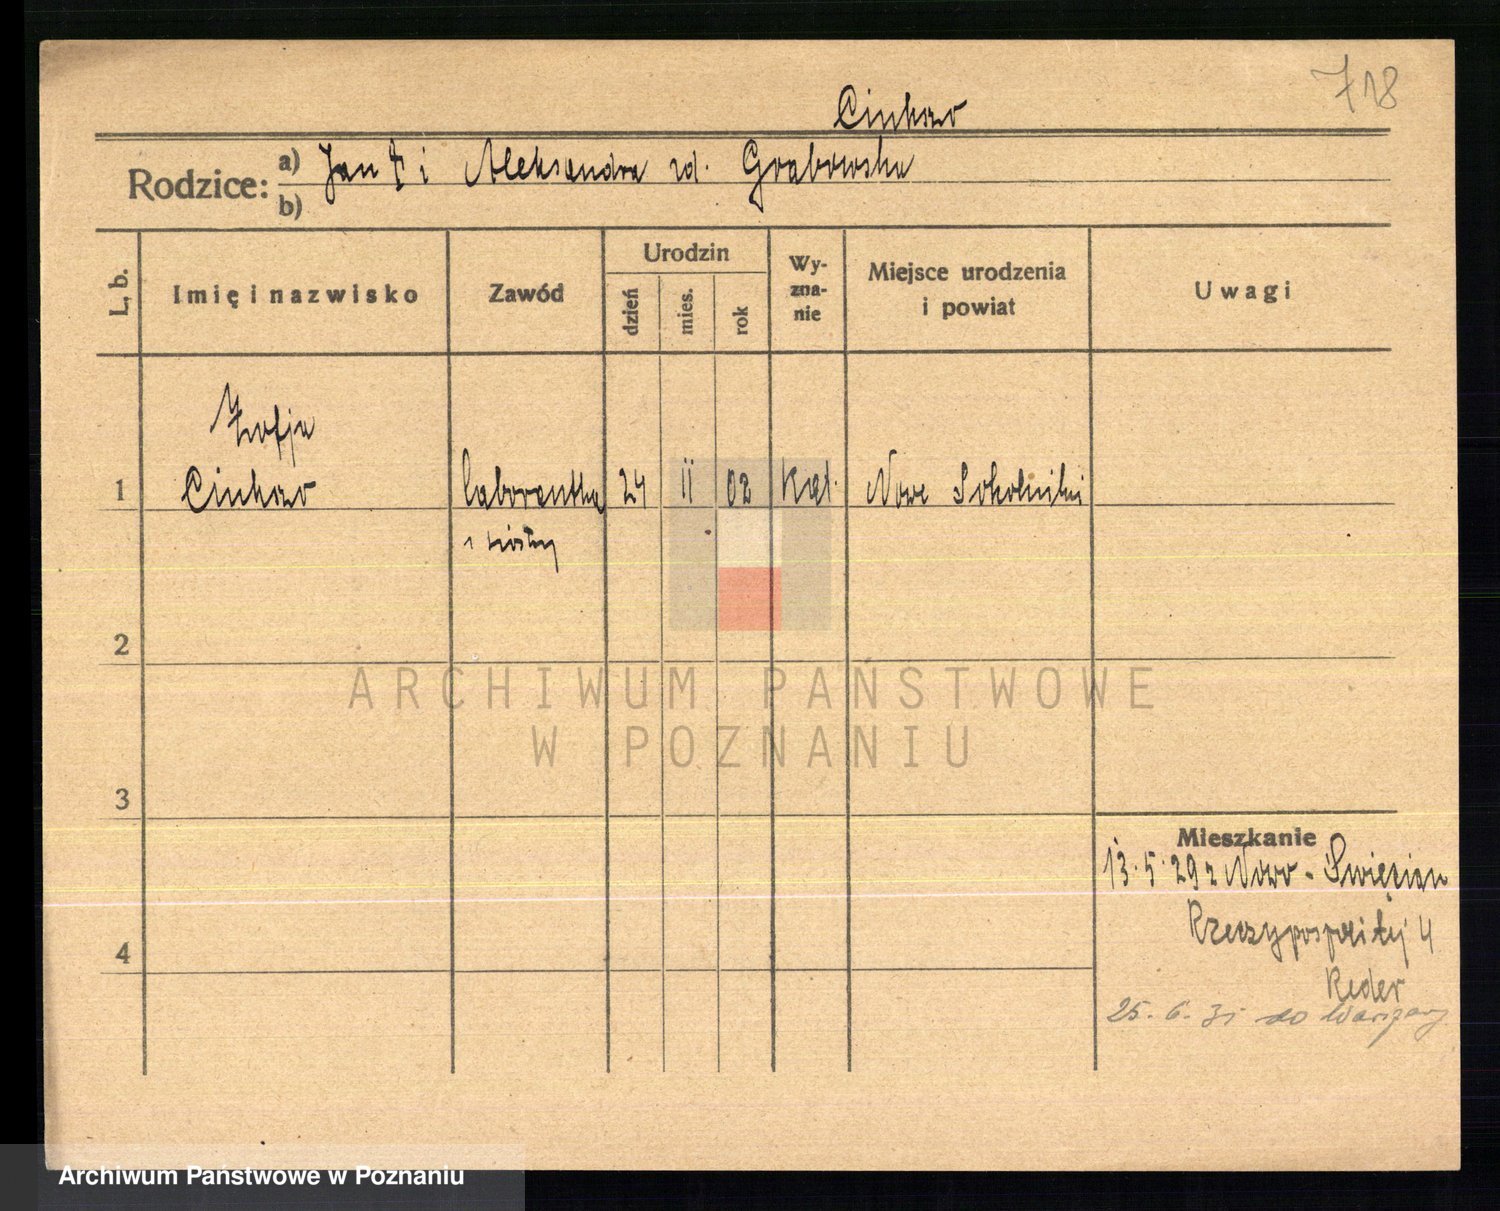 718
Cinkszo
Rodzice: a) Jan † i Aleksandra zd. Grabowska
b)
L. b.
Imię i nazwisko
Zawód
Urodzin
dzień
mies.
rok
Wy-
zna-
nie
Miejsce urodzenia
i powiat
Uwagi
Zofja
1 laborantka 24 II 02 Kat. Nowe Sokolniki
2
ARCHIWUM PAŃSTWOWE
W POZNANIU
3
Mieszkanie
13.5.29 z Nowo-Święcian
Rzeczypospolitej 4
4
Reder
25.6.31 do Warszawy
Archiwum Państwowe w Poznaniu